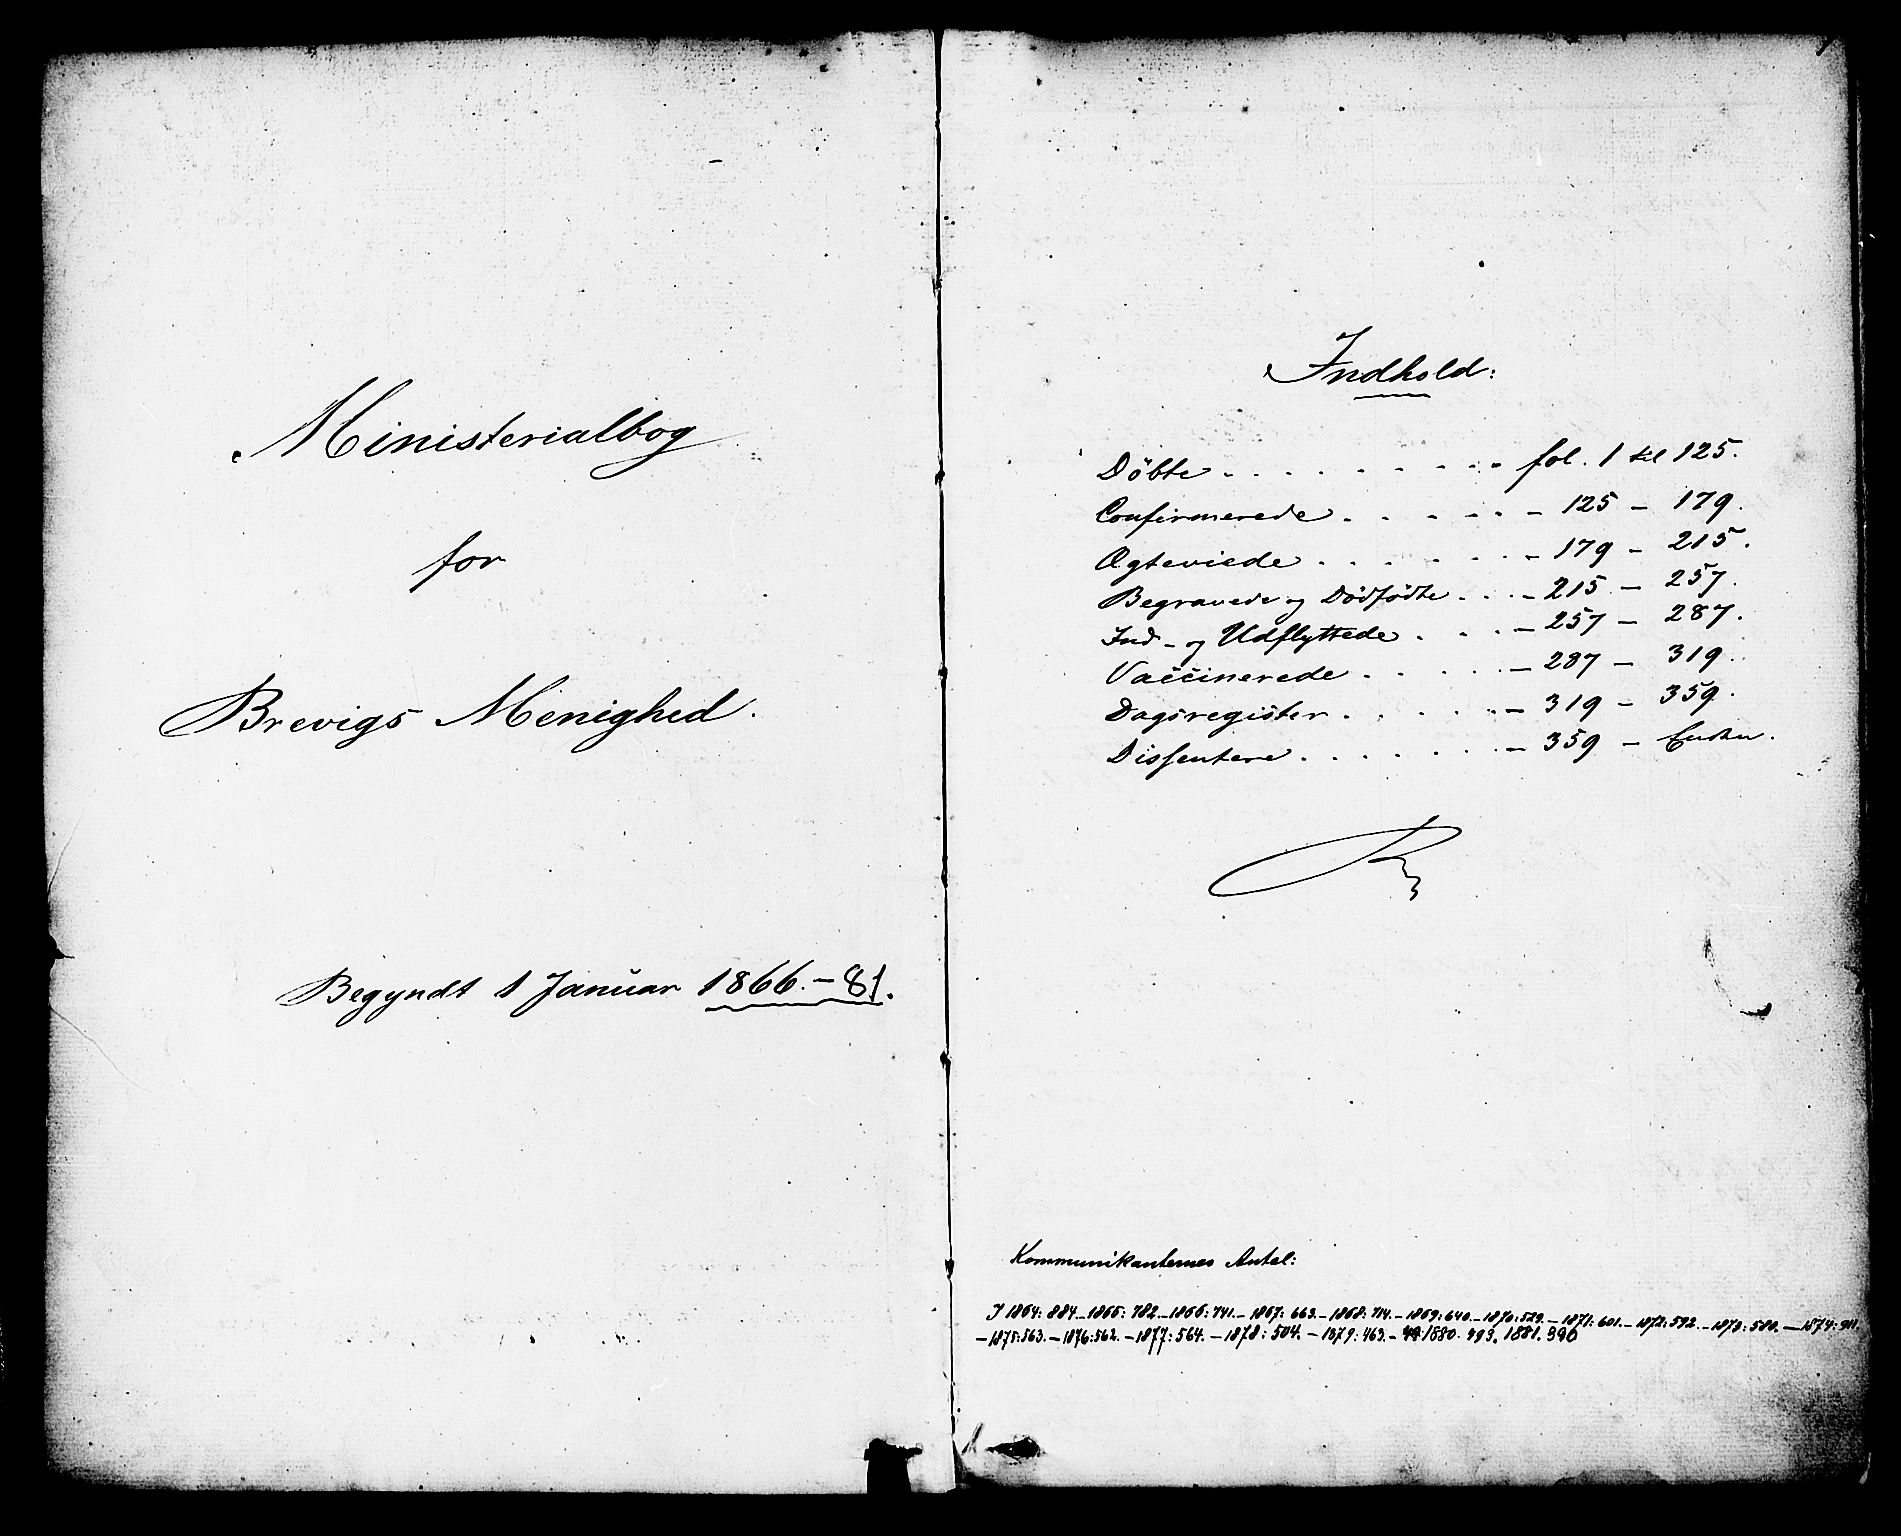 Ministerialbog
for
Brevigs Menighed.
Begyndt 1 Januar 1866.-81.
Indhold:
Döbte . . . . . . . . . fol. 1 til 125.
Confirmerede . . . . . - 125 - 179.
Ægteviede . . . . . . - 179 - 215.
Begravede og Dödfödte . . . - 215 - 257.
Ind- og Udflyttede . . . - 257 - 287.
Vaccinerede . . . . . - 287 - 319.
Dagsregister . . . . . - 319 - 359.
Dissentere . . . . . . - 359 - Enden.
Kommunikanternes Antal:
I 1864: 884.-1865: 782.-1866: 741.-1867: 663.-1868: 714.-1869: 640.-1870: 529.-1871: 601.-1872: 592.-1873: 580.-1874:
-1875: 563.-1876: 562.-1877: 564.-1878: 504.-1879: 463.- 1880. 493. 1881. 390